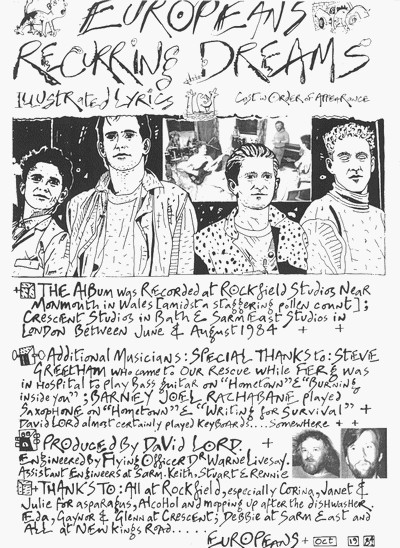 EUROPEANS
RECURRING DREAMS
ILLUSTRATED LYRICS
CAST IN ORDER OF APPEARANCE
+ THE ALBUM WAS RECORDED AT ROCKFIELD STUDIOS NEAR
MONMOUTH IN WALES [AMIDST A STAGGERING POLLEN COUNT];
CRESCENT STUDIOS IN BATH & SARM EAST STUDIOS IN
LONDON BETWEEN JUNE & AUGUST 1984 + +
+ ADDITIONAL MUSICIANS: SPECIAL THANKS TO: STEVE
GREETHAM WHO CAME TO OUR RESCUE WHILE FERG WAS
IN HOSPITAL TO PLAY BASS GUITAR ON "HOMETOWN" & "BURNING
INSIDE YOU"; BARNEY JOEL RACHABANE PLAYED
SAXOPHONE ON "HOMETOWN" & "WRITING FOR SURVIVAL" +
DAVID LORD ALMOST CERTAINLY PLAYED KEYBOARDS.... SOMEWHERE + +
PRODUCED BY DAVID LORD. +
ENGINEERED BY FLYING OFFICER DR WARNE LIVESAY.
ASSISTANT ENGINEERS AT SARM. KEITH, STUART & RENNIE
+ THANKS TO: ALL AT ROCKFIELD, ESPECIALLY CORINA, JANET &
JULIE FOR ASPARAGUS, ALCOHOL AND MOPPING UP AFTER THE DISHWASHER.
EDA, GAYNOR & GLENN AT CRESCENT; DEBBIE AT SARM EAST AND
ALL AT NEW KINGS ROAD.....
EUROPEANS + OCT 19 84